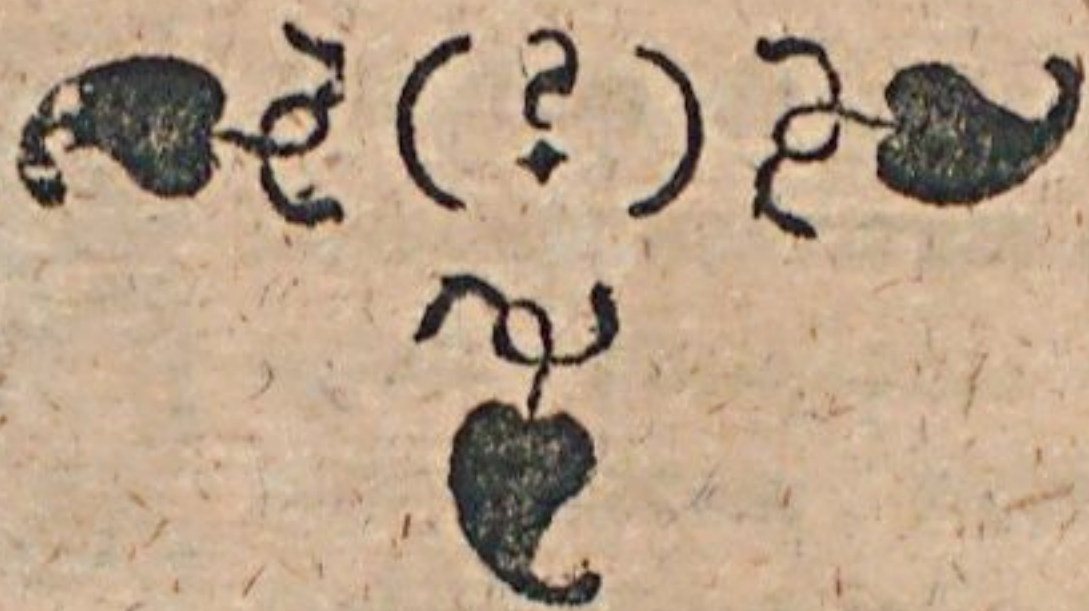 ❧ (?) ☙
❧